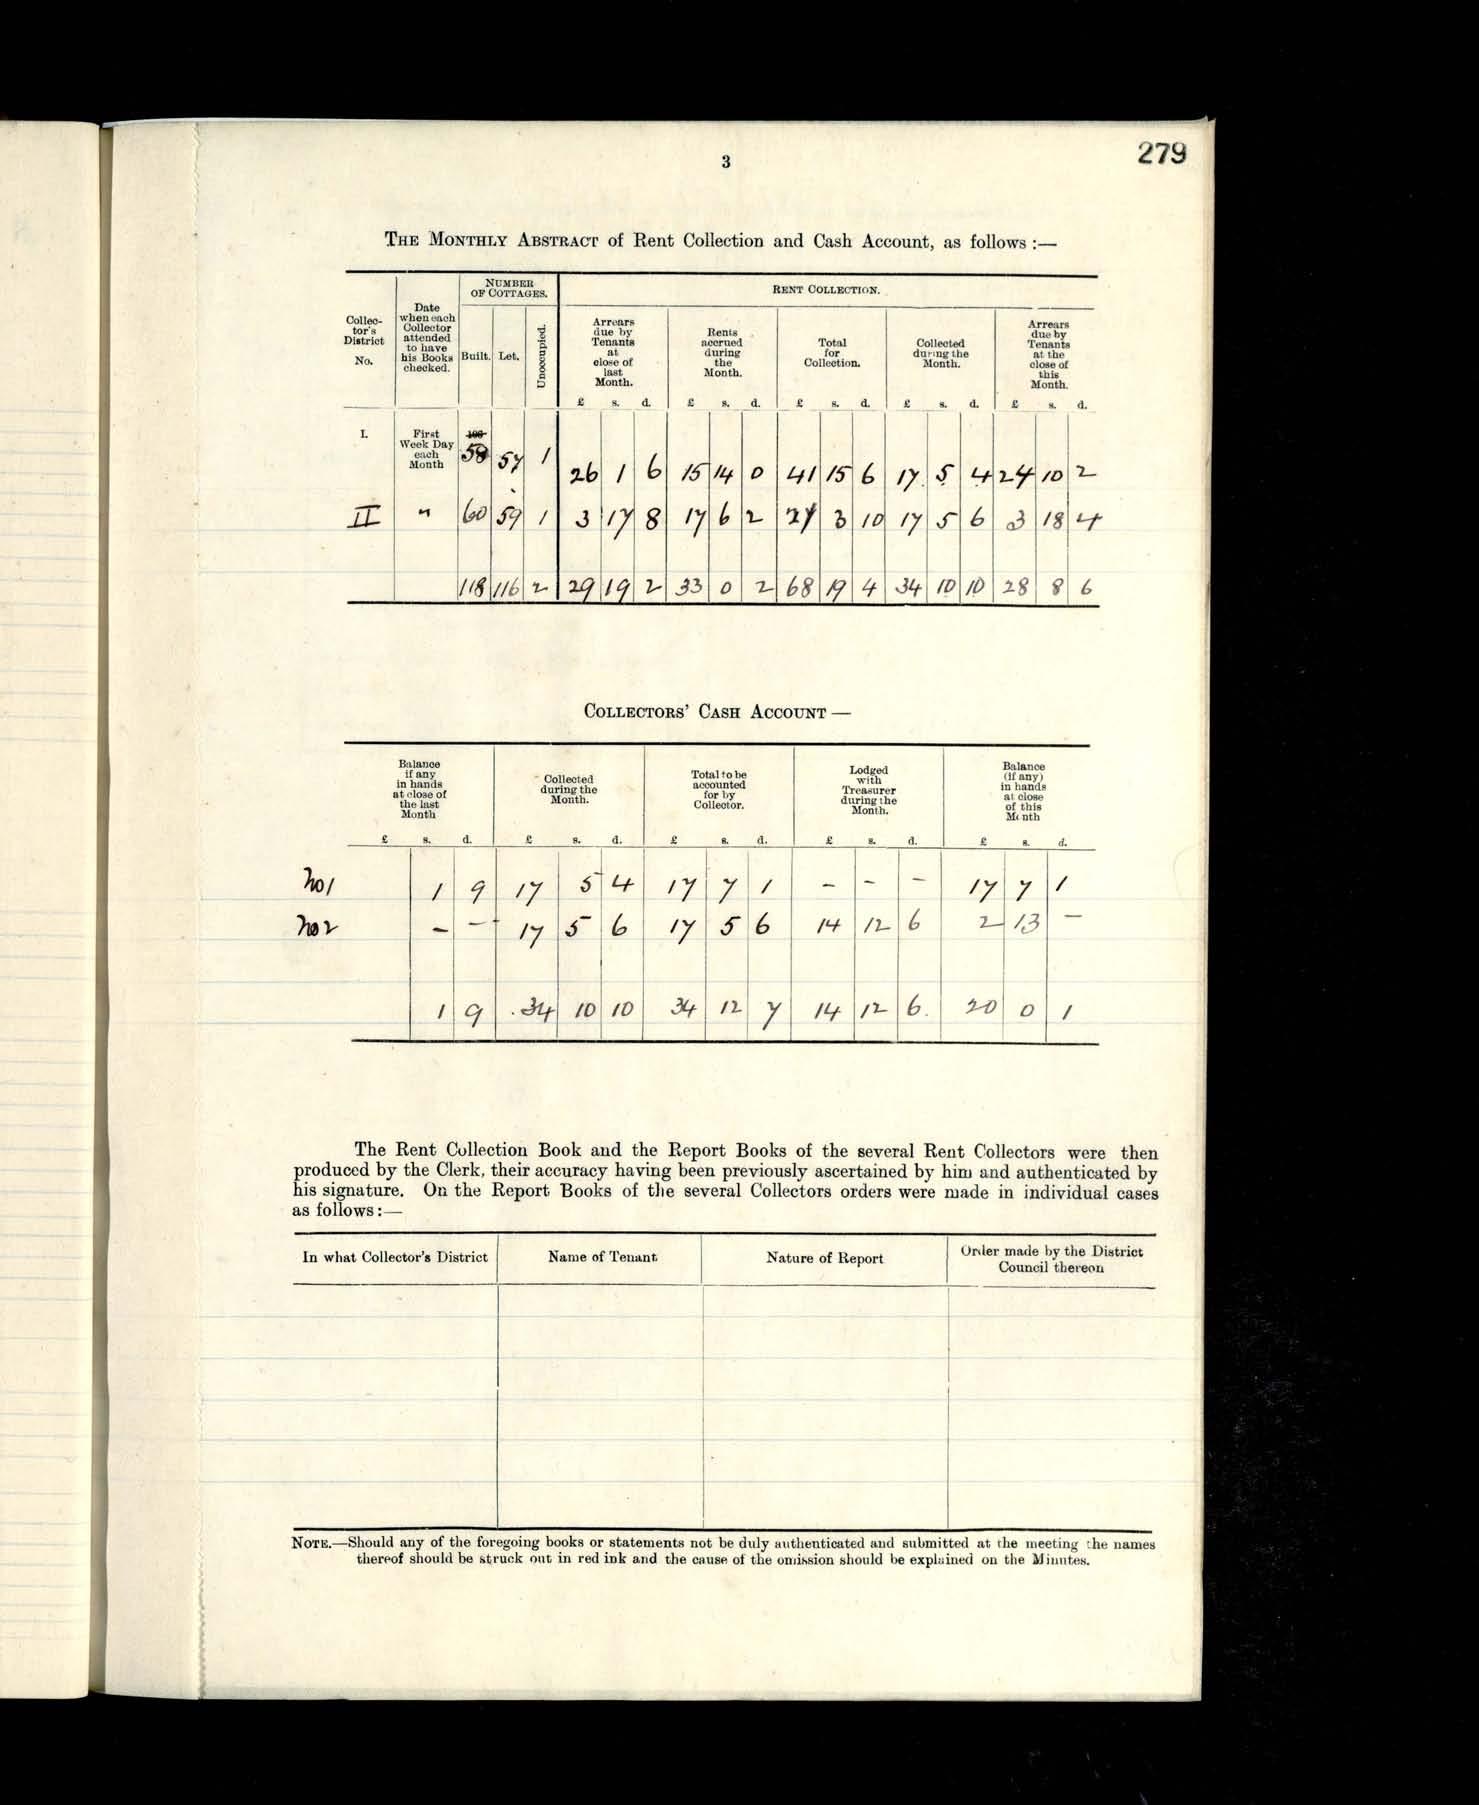 279
3
THE MONTHLY ABSTRACT of Rent Collection and Cash Account, as follows :—
Collec-
tor's
District
No.
Date
when each
Collector
attended
to have
his Books
checked.
NUMBER
OF COTTAGES.
Built. Let. Unoccupied.
RENT COLLECTION.
Arrears
due by
Tenants
at
close of
last
Month.
Rents
accrued
during
the
Month.
Total
for
Collection.
Collected
during the
Month.
Arrears
due by
Tenants
at the
close of
this
Month.
£ s. d. £ s. d. £ s. d. £ s. d. £ s. d.
I. First
Week Day
each
Month
58 57 1 26 1 6 15 14 0 41 15 6 17 5 4 24 10 2
II " 60 59 1 3 17 8 17 6 2 21 3 10 17 5 6 3 18 4
118 116 2 29 19 2 33 0 2 68 19 4 34 10 10 28 8 6
COLLECTORS' CASH ACCOUNT —
Balance
if any
in hands
at close of
the last
Month
Collected
during the
Month.
Total to be
accounted
for by
Collector.
Lodged
with
Treasurer
during the
Month.
Balance
(if any)
in hands
at close
of this
Month
£ s. d. £ s. d. £ s. d. £ s. d. £ s. d.
No 1 1 9 17 5 4 17 7 1 - - - 17 7 1
No 2 - - 17 5 6 17 5 6 14 12 6 2 13 -
1 9 34 10 10 34 12 7 14 12 6. 20 0 1
The Rent Collection Book and the Report Books of the several Rent Collectors were then
produced by the Clerk, their accuracy having been previously ascertained by him and authenticated by
his signature. On the Report Books of the several Collectors orders were made in individual cases
as follows :—
In what Collector's District Name of Tenant Nature of Report Order made by the District
Council thereon
NOTE.—Should any of the foregoing books or statements not be duly authenticated and submitted at the meeting the names
thereof should be struck out in red ink and the cause of the omission should be explained on the Minutes.